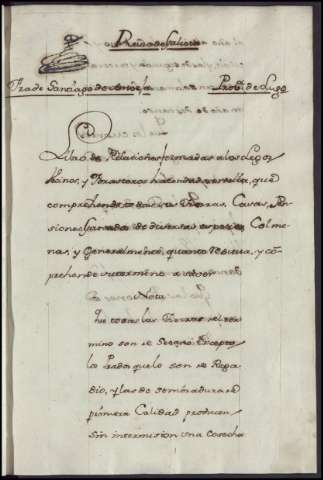 Reino de Galicia
Frâ de Santiago de Prov.ª de Lugo
Libro de Relaciones formadas a los Legos
Vezinos, y Forasteros hacendados en ella, que
comprehende todas las Tierras, Casas, Pen-
siones, Ganados de diversas especies, Colme-
nas, y Generalmente, quanto se situa, y com-
prehende su termino a saver
Nota
Que todas las Tierras del ter-
mino son de Secano Excepto
lo Prados que lo son de Rega-
dio, y las de sembradura de
primera Calidad producen
Sin intermision una Cosecha